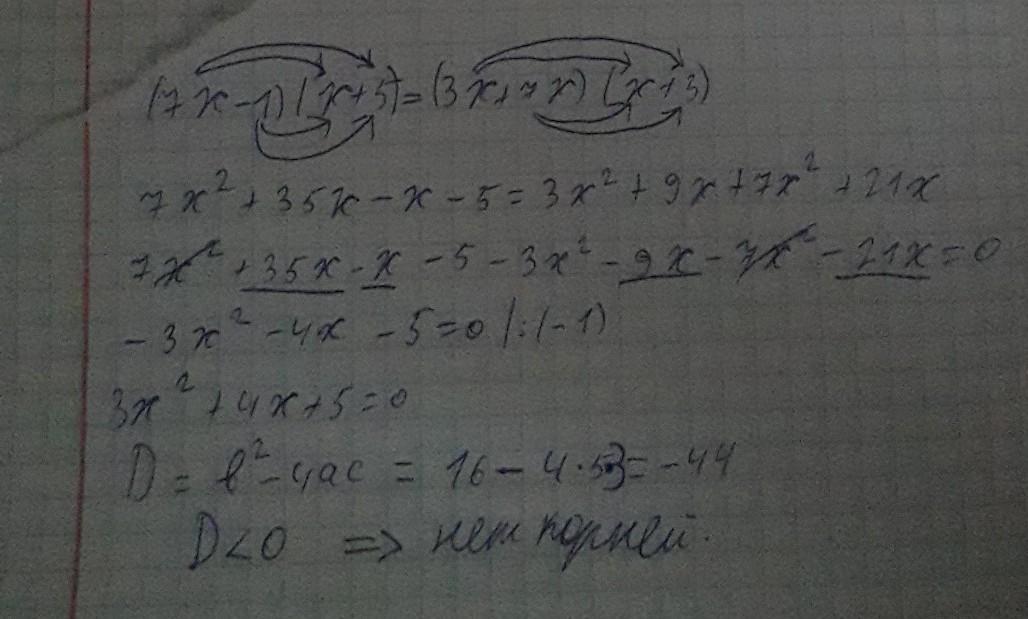 (7x-1)(x+5)=(3x+7x)(x+3)
7x²+35x-x-5=3x²+9x+7x²+21x
7x²+35x-x-5-3x²-9x-7x²-21x=0
-3x²-4x-5=0 |:(-1)
3x²+4x+5=0
D=b²-4ac=16-4·5·3=-44
D<0 => нет корней.